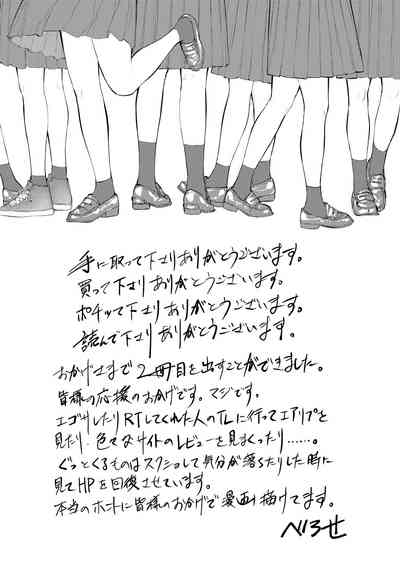 手に取って下さりありがとうございます。
買って下さりありがとうございます。
ポチッて下さりありがとうございます。
読んで下さりありがとうございます。
おかげさまで2冊目を出すことができました。
皆様の応援のおかげです。マジです。
エゴサしたりRTしてくれた人のTLに行ってエアリプを
見たり、色々なサイトのレビューを見まくったり……。
ぐっとくるものはスクショして気分が落ちたりした時に
見てHPを回復させています。
本当のホントに皆様のおかげで漫画描けてます。